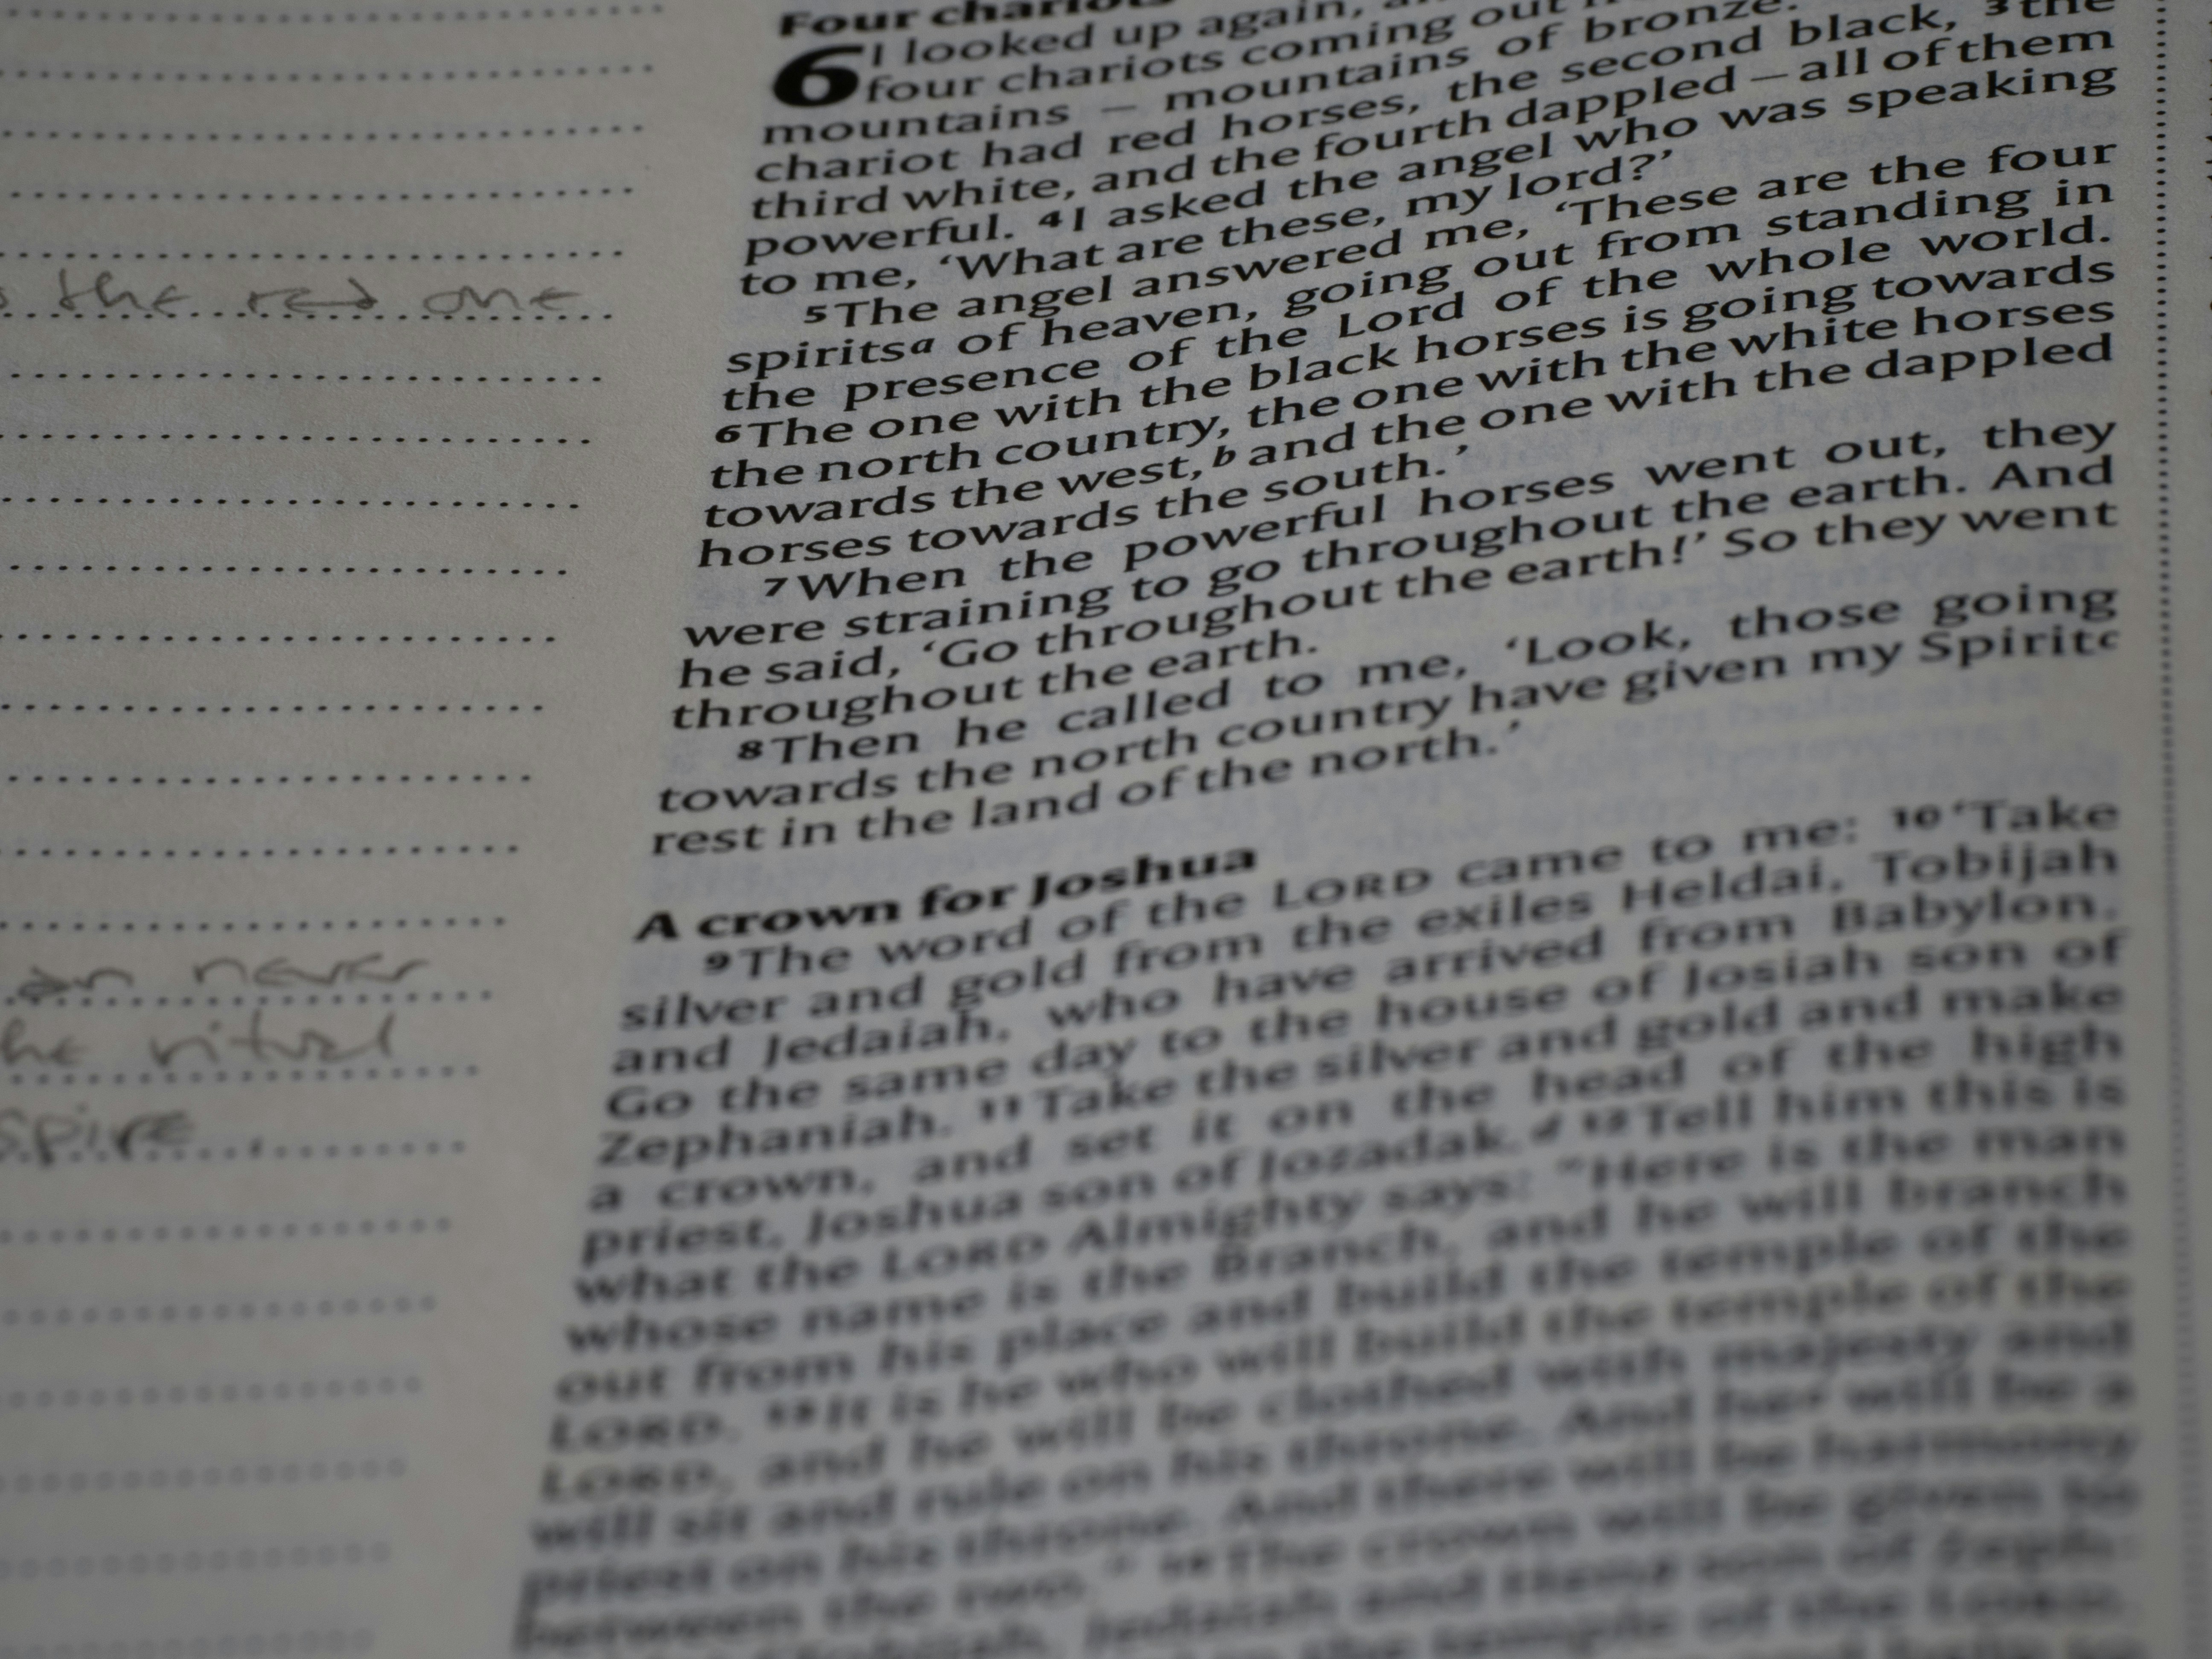 the red one
an never
he ritual
spire
Four chariots
6 I looked up again,
four chariots coming out
mountains – mountains of bronze.
chariot had red horses, the second black, 3 the
third white, and the fourth dappled – all of them
powerful. 4 I asked the angel who was speaking
to me, ‘What are these, my lord?’
5 The angel answered me, ‘These are the four
spiritsa of heaven, going out from standing in
the presence of the Lord of the whole world.
6 The one with the black horses is going towards
the north country, the one with the white horses
towards the west,b and the one with the dappled
horses towards the south.’
7 When the powerful horses went out, they
were straining to go throughout the earth. And
he said, ‘Go throughout the earth!’ So they went
throughout the earth.
8 Then he called to me, ‘Look, those going
towards the north country have given my Spiritc
rest in the land of the north.’
A crown for Joshua
9 The word of the LORD came to me: 10 ‘Take
silver and gold from the exiles Heldai, Tobijah
and Jedaiah, who have arrived from Babylon.
Go the same day to the house of Josiah son of
Zephaniah. 11 Take the silver and gold and make
a crown, and set it on the head of the high
priest, Joshua son of Jozadak.d 12 Tell him this is
what the LORD Almighty says: “Here is the man
whose name is the Branch, and he will branch
out from his place and build the temple of the
LORD. 13 It is he who will build the temple of the
LORD, and he will be clothed with majesty and
will sit and rule on his throne. And he will be a
priest on his throne. And there will be harmony
between the two.” 14 The crown will be given to
Jedaiah and Hen son of
the temple of the LORD.